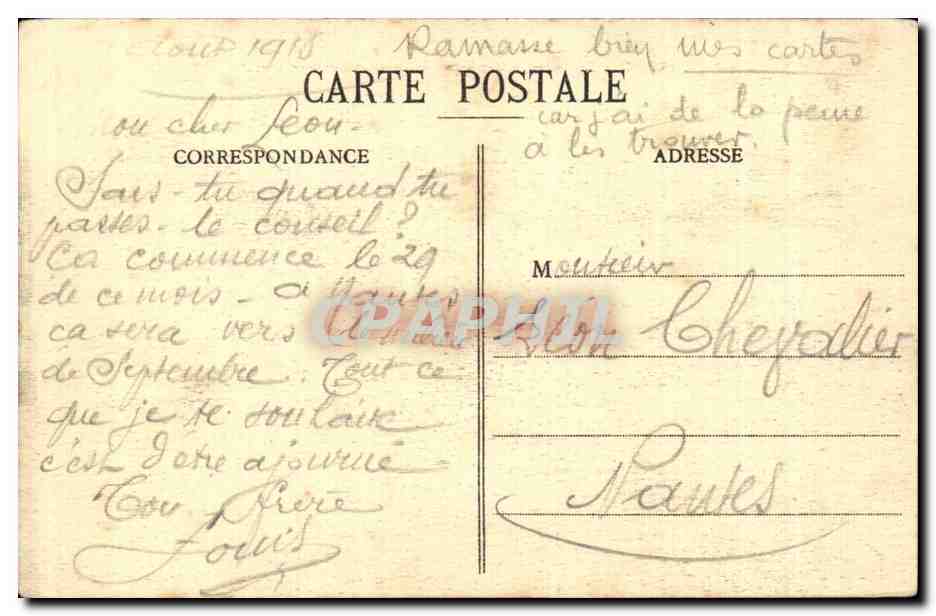 1915 Ramasse bien mes cartes
CARTE POSTALE
car j'ai de la peine
à les trouver.
mon cher Léon -
CORRESPONDANCE
ADRESSE
Sais-tu quand tu
passes - le conseil ?
Ca commence le 29
de ce mois - A Nantes
ca sera vers le
de Septembre. Tout ce
que je te souhaite
c'est d'être ajourné -
Ton frère
Louis
Monsieur
Léon Chevalier
Nantes
CPAPHIL